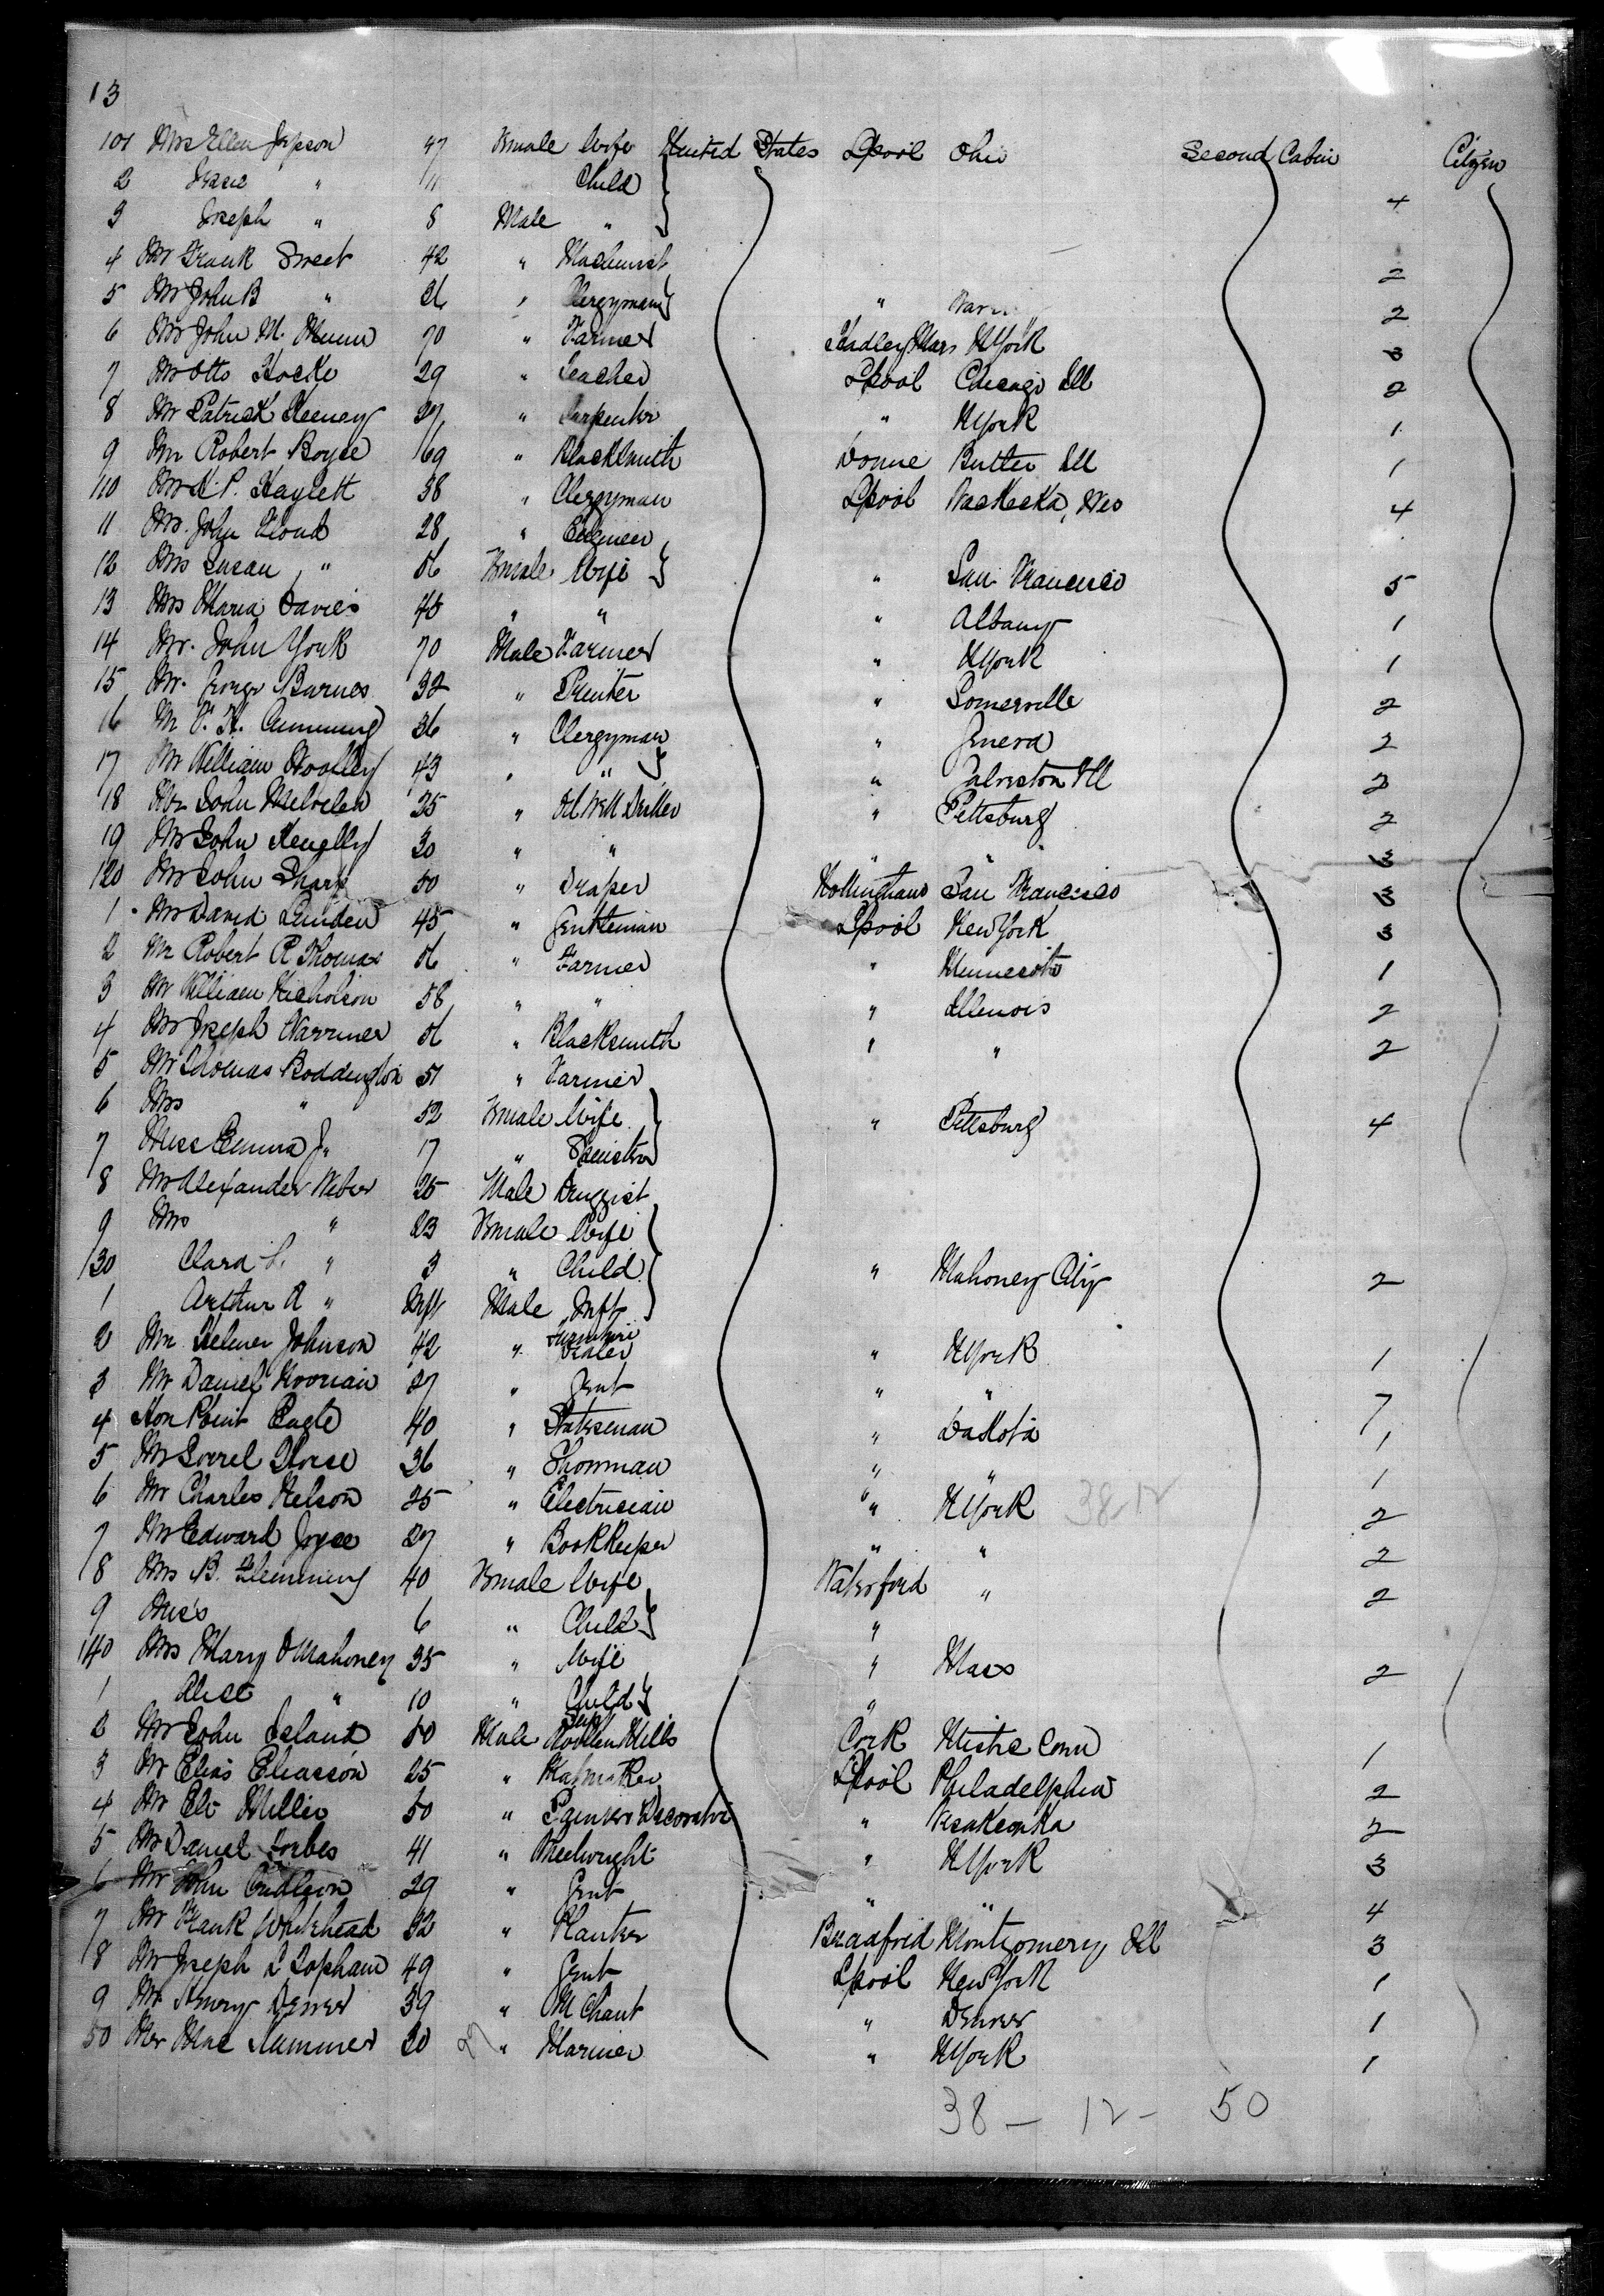 13
101 Mrs Ellen Jepson 47 Female Wife United States Lpool Ohio Second Cabin Citizen
2 " 11 Child 4
3 Joseph " 8 Male "
4 Mr Frank Sweet 42 " Machinist 2
5 Mr John B " 26 " Clergyman " 2
6 Mr John M. Munn 70 " Farmer NYork 3
7 Mr Otto Hocke 29 " Teacher Lpool Chicago Ill 2
8 Mr Patrick Keeney 27 " Carpenter " NYork 1
9 Mr Robert Boyce 69 " Blacksmith Butler Ill 1
110 Mr Haylett 38 " Clergyman Lpool Wis 4
11 Mr. John 28 " Engineer
12 Mrs Susan " 26 Female Wife " San Francisco 5
13 Mrs Maria Davies 45 " " " Albany 1
14 Mr. John York 70 Male Farmer " NYork 1
15 Mr. George Barnes 32 " Printer " Somerville 2
16 Mr Cumming 36 " Clergyman " Geneva 2
17 Mr William 43 " " " Galveston Ill 2
18 Mr John 35 " Oil Well Driller " Pittsburg 2
19 Mr John 30 " " " " 3
120 Mr John Sharp 50 " Draper Nottingham San Francisco 3
1 Mr David Linden 45 " Gentleman Lpool New York 3
2 Mr Robert R Thomas 56 " Farmer " Minnesota 1
3 Mr William Nicholson 58 " " " Illinois 2
4 Mr Joseph Warriner 56 " Blacksmith " " 2
5 Mr Thomas Boddington 51 " Farmer
6 Mrs " 52 Female Wife " Pittsburg 4
7 Miss Emma J " 17 " Spinster
8 Mr Alexander Weber 25 Male Druggist
9 Mrs " 23 Female Wife
130 Clara L. " 3 " Child " Mahoney City 2
1 Arthur R " Inft Male Inft
2 Mr. Helmer Johnson 42 " Furniture Dealer " NYork 1
3 Mr Daniel Noonan 27 " Gent " " 7
4 Hon Point Eagle 40 " Statesman " Dakota 1
5 Mr Sorrel Horse 36 " Showman " " 1
6 Mr Charles Nelson 25 " Electrician " NYork 38-12 2
7 Mr Edward Joyce 27 " Bookkeeper " " 2
8 Mrs B. Flemming 40 Female Wife Waterford " 2
9 Miss 6 " Child "
140 Mrs Mary O Mahoney 35 " Wife " Mass 2
1 Alice " 10 " Child "
2 Mr John Ireland 50 Male Supt Woollen Mills Cork Mistic Conn 1
3 Mr Elias Eliasson 25 " Lpool Philadelphia 2
4 Mr Eli Miller 50 " Painter & Decorator " 2
5 Mr Daniel Forbes 41 " Wheelwright " NYork 3
6 Mr John 29 " Gent " " 4
7 Mr Frank Whitehead 32 " Planter Bradford Montgomery Ill 3
8 Mr Joseph T Topham 49 " Gent Lpool New York 1
9 Mr Henry Denver 39 " M Chant " Denver 1
50 Mr Mac Summer 20 " Mariner " NYork 1
38 - 12 - 50